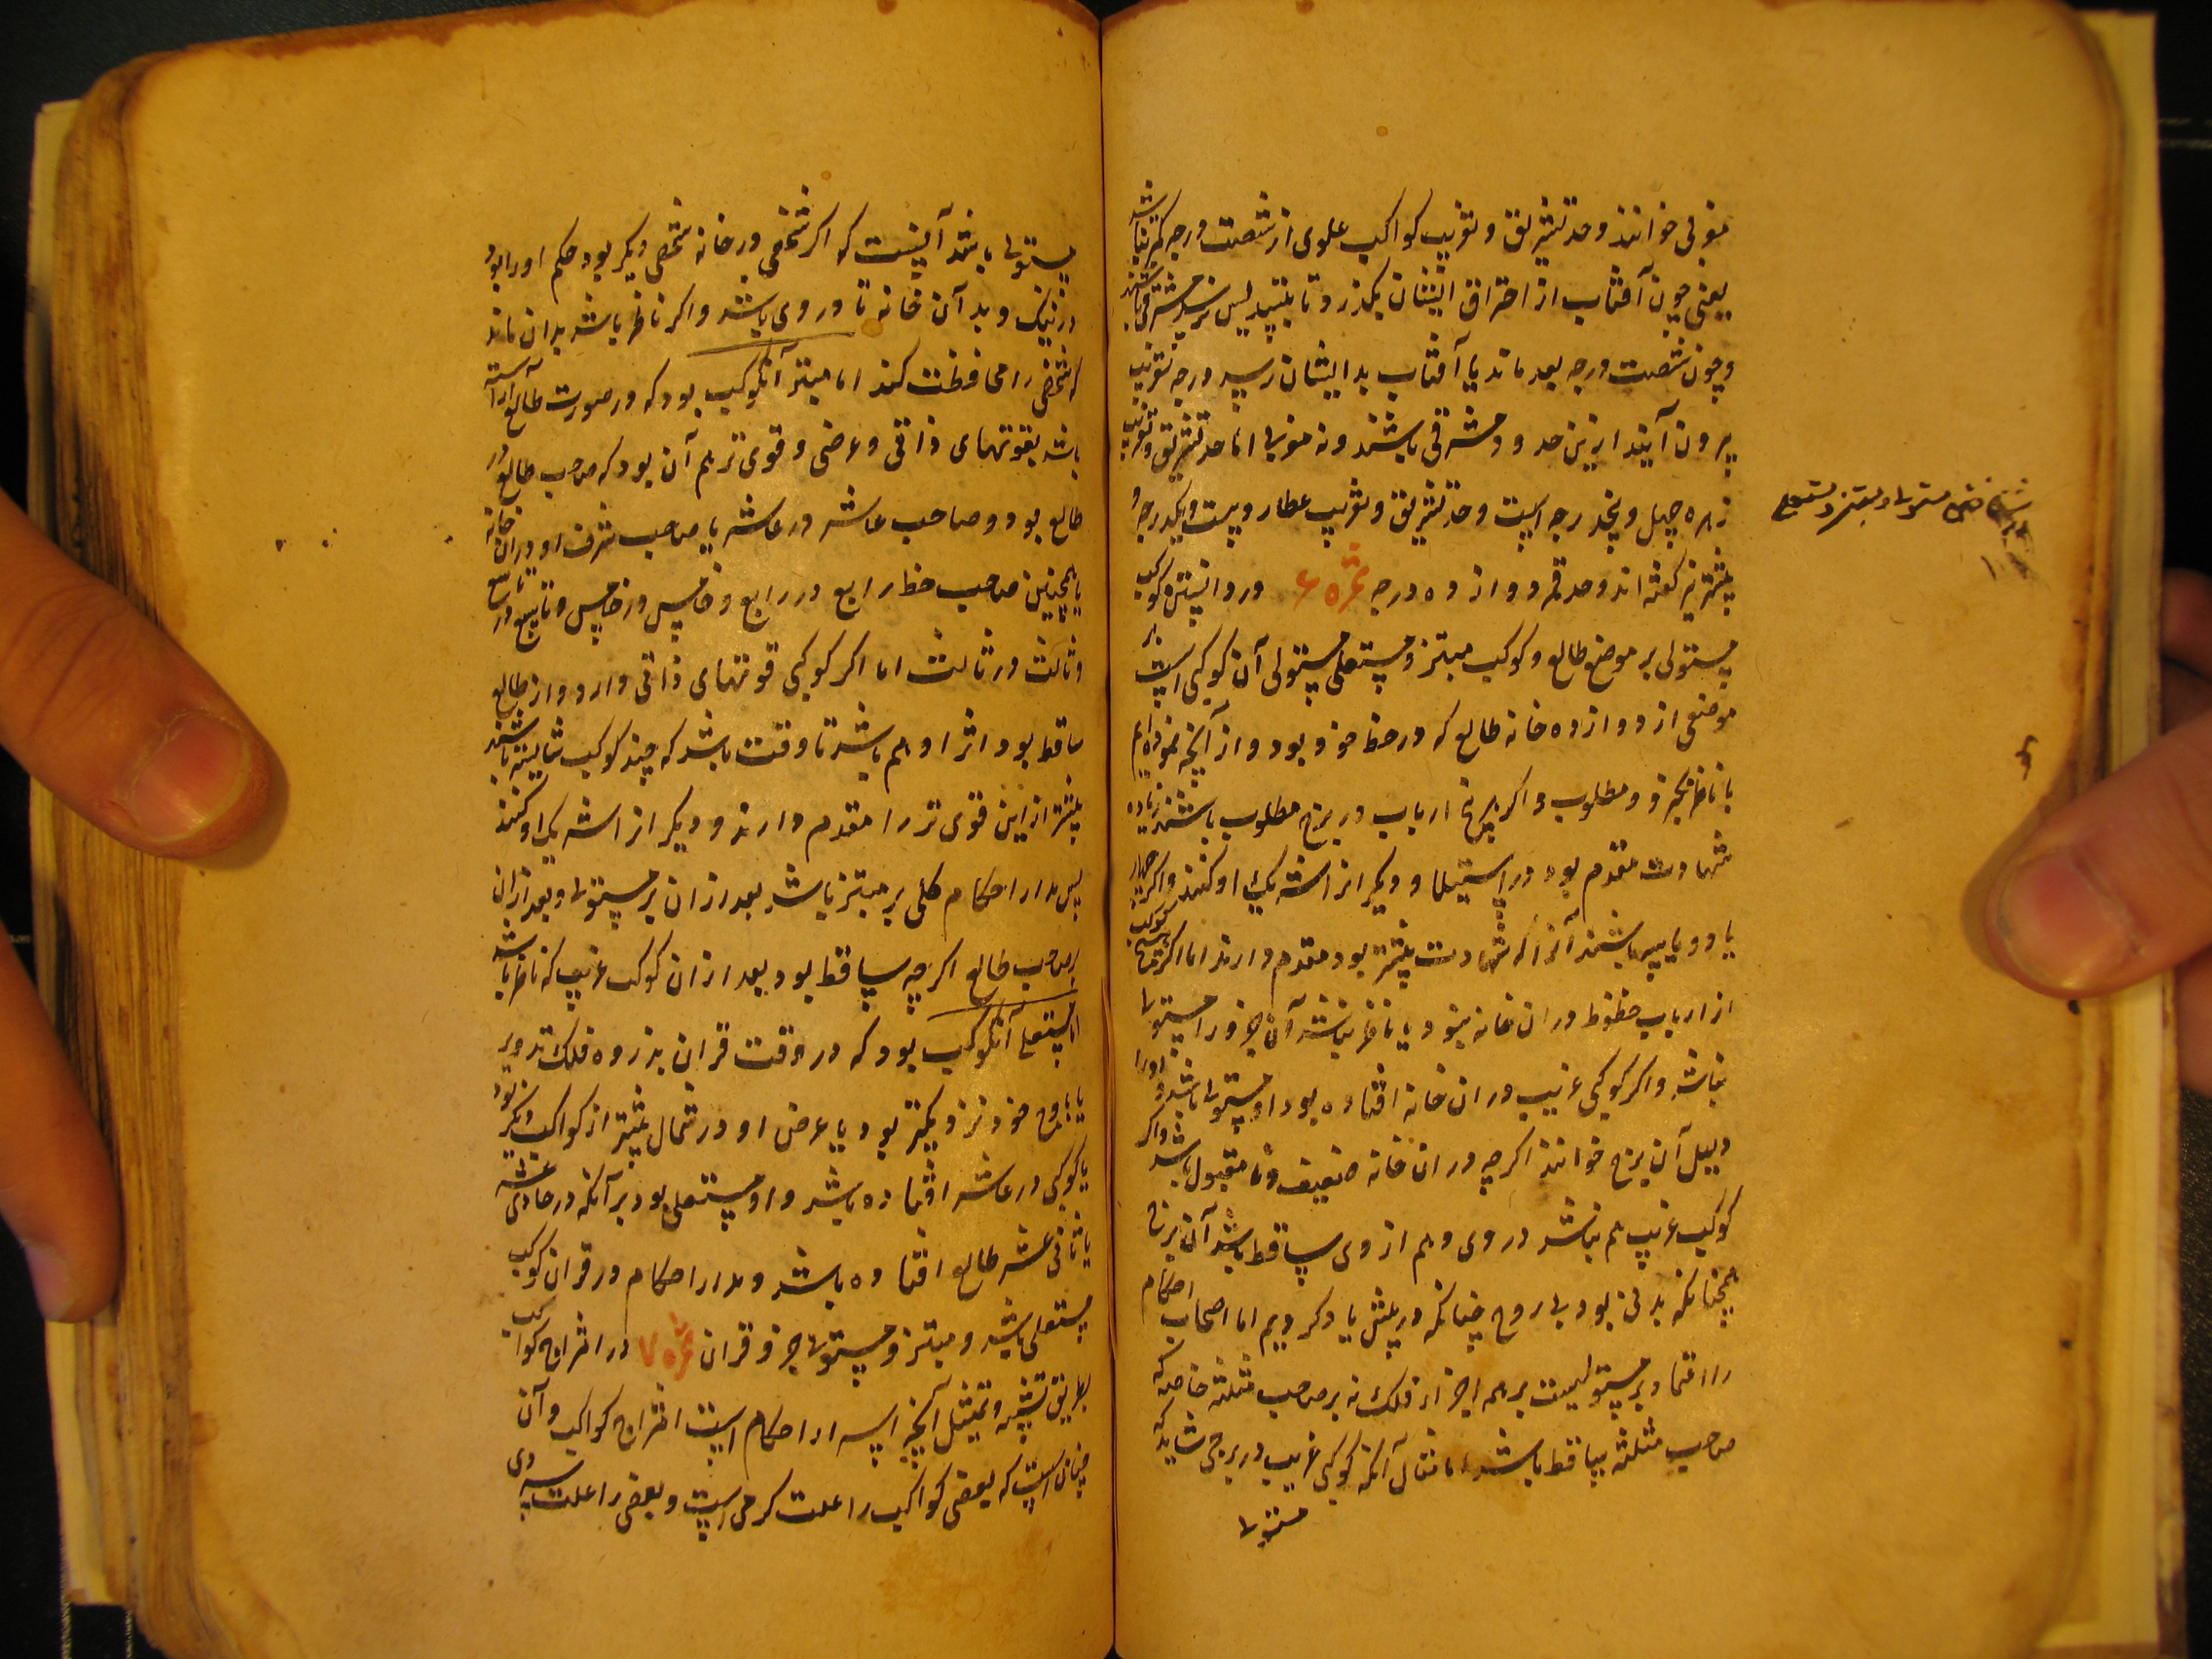 مغربی خوانند و حد تشریق و تغریب کواکب علوی از شصت درجه کمتر نباشد
یعنی چون آفتاب از احتراق ایشان بگذرد تا پس مشرقی باشند
و چون شصت درجه بعد ماند یا آفتاب بدایشان رسد درجه تغریب
بیرون آیند ازین حد و د مشرقی باشند و نه مغربی اما حد تشریق و تغریب
زهره چهل و پنجدرجه است و حد تشریق و تغریب عطارد بیست و یکدرجه و
بیشتر نیز گفته اند و حد قمر دوازده درجه در دانستن کوکب
مستولی بر موضع طالع و کوکب مبتز و مستعلی مستولی آن کوکبی است بر
موضعی از دوازده خانه طالع که در حظ خود بود و از آنچه نموده ایم
با ناظر بجزو و مطلوب و اگر پنج ارباب در برج مطلوب باشند زیاده
شهادت مقدم بود در استیلا و دیگر انرا شریک او کنند و اگر چهار
یا دو یا سه باشند آنرا که شهادت بیشتر بود مقدم دارند اما اگر هیچ کوکب
از ارباب حظوظ در ان خانه نبود یا ناظر نباشد آن جزو را مستولی
نباشد و اگر کوکبی غریب در ان خانه افتاده بود او مستولی باشد و اورا
دلیل آن برج خوانند اگرچه در ان خانه ضعیف و نا مقبول باشد و اگر
کوکب غریب هم نباشد در وی و هم از وی ساقط باشد آن برج
همچنانکه بدنی بود بی روح چنانکه در پیش یاد کردیم اما اصحاب احکام
را اعتماد بر مستولیست بر همه اجزاء فلک نه بر صاحب مثلثه خاصه که
صاحب مثلثه ساقط باشد اما مثال آنکه کوکبی غریب در برجی شاید که
مستولی
مستولی و مبتز و مستعلی
مستولی باشد آنست که اگر شخصی در خانه شخصی دیگر بود حکم او را بود
در نیک و بد آن خانه تا در وی باشد و اگر ناظر باشد بدان ماند
که شخصی را محافظت کند اما مبتز آنکوکب بود که در صورت طالع آراسته
باشد بقوتهای ذاتی و عرضی و قوی تر هم آن بود که صاحب طالع در
طالع بود و صاحب عاشر در عاشر یا صاحب شرف او در ان خانه
یا همچنین صاحب حظ رابع در رابع و خامس در خامس و تاسع در تاسع
و ثالث در ثالث اما اگر کوکبی قوتهای ذاتی دارد و از طالع
ساقط بود اثر او هم باشد تا وقت باشد که چند کوکب شایسته باشند
بیشتر از این قوی تر را مقدم دارند و دیگر انرا شریک او کنند
پس مدار احکام کلی بر مبتز باشد بعد از ان بر مستولی و بعد از ان
بر صاحب طالع اگرچه ساقط بود بعد از ان کوکب غریب که ناظر باشد
اما مستعلی آنکوکب بود که در وقت قران بذروه فلک تدویر
یا باوج خود نزدیکتر بود یا عرض او در شمال بیشتر از کواکب دیگر بود
یا کوکبی در عاشر افتاده باشد و او مستعلی بود بر آنکه در حادی عشر
یا ثانی عشر طالع افتاده باشد و مدار احکام در قران کوکب
مستعلی باشد و مبتز و مستولی جزو قران در امتزاج کواکب
بطریق تشبیه و تمثیل آنچه از احکام است امتزاج کواکب و آن
چنان است که بعضی کواکب را علت گرمی است و بعضی را علت سردی